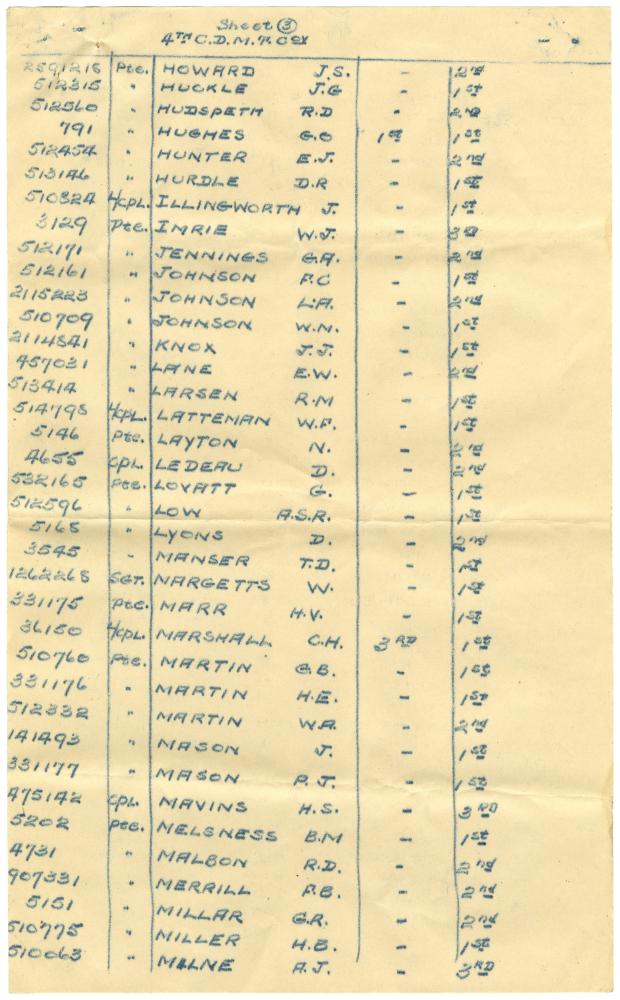 Sheet ③
4TH C.D.M.T. Coy
2591218 Pte. HOWARD J.S. - 2nd
512315 " HUCKLE J.G - 1st
512560 " HUDSPETH R.D - 2nd
791 " HUGHES G.O 1st 1st
512454 " HUNTER E.J. - 2nd
513146 " HURDLE D.R - 1st
510324 L/cpl. ILLINGWORTH J. - 1st
3129 Pte. IMRIE W.J. - 3rd
512171 " JENNINGS G.A. - 2nd
512161 " JOHNSON F.C - 1st
2115223 " JOHNSON L.A. - 2nd
510709 " JOHNSON W.N. - 1st
2114841 " KNOX J.J. - 1st
457031 " LANE E.W. - 2nd
513414 " LARSEN R.M - 1st
514798 L/cpl. LATTEMAN W.F. - 1st
5146 Pte. LAYTON N. - 2nd
4655 Cpl. LEDEAU D. - 2nd
532165 Pte. LOVATT G. - 1st
512596 " LOW A.S.R. - 1st
5168 " LYONS D. - 2nd
3545 " MANSER T.D. - 1st
1262268 SGT. MARGETTS W. - 1st
331175 Pte. MARR H.V. - 1st
36150 L/cpl. MARSHALL C.H. 3RD 1st
510760 Pte. MARTIN G.B. - 1st
331176 " MARTIN H.E. - 1st
512332 " MARTIN W.A. - 2nd
141493 " MASON J. - 1st
331177 " MASON P.J. - 1st
475142 Cpl. MAVINS H.S. - 3RD
5202 Pte. MELSNESS B.M - 1st
4731 " MALBON R.D. - 2nd
907331 " MERRILL F.B. - 2nd
5151 " MILLAR G.R. - 2nd
510775 " MILLER H.B. - 1st
510063 " MILNE A.J. - 3RD